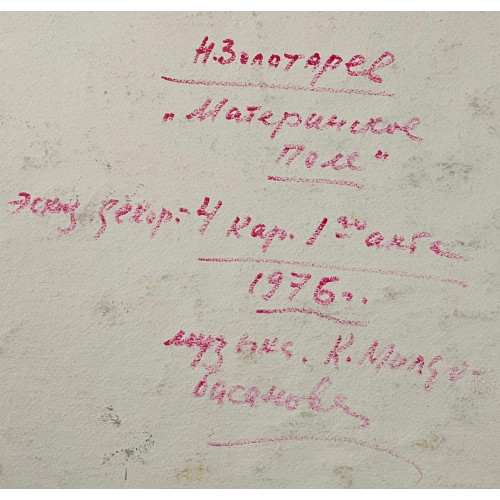 Н. Золотарев
„Материнское
Поле"
эскиз декор. 4 кар. 1го акта
1976 г.
музыка. К. Молдо-
басанова